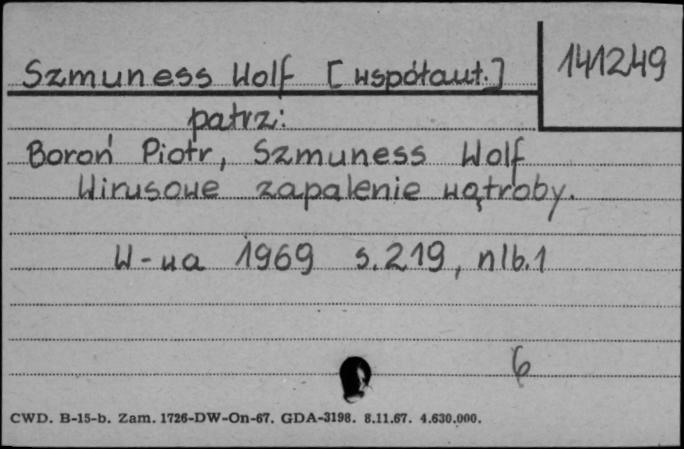 Szmuness Wolf [współaut.]
141249
patrz:
Boroń Piotr, Szmuness Wolf
Wirusowe zapalenie wątroby.
W-wa 1969 s.219, nlb.1
6
CWD. B-15-b. Zam. 1726-DW-On-67. GDA-3198. 8.11.67. 4.630.000.